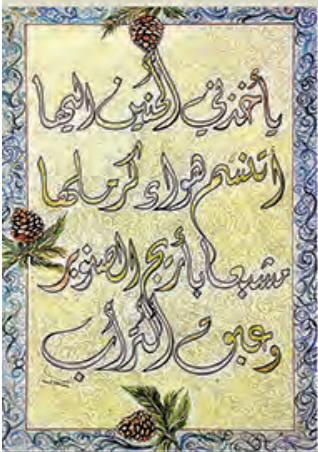 يأخذني الحنين إليها
أتنسم هواء كرملها
مشبعا بأريج الصنوبر
وعبق التراب